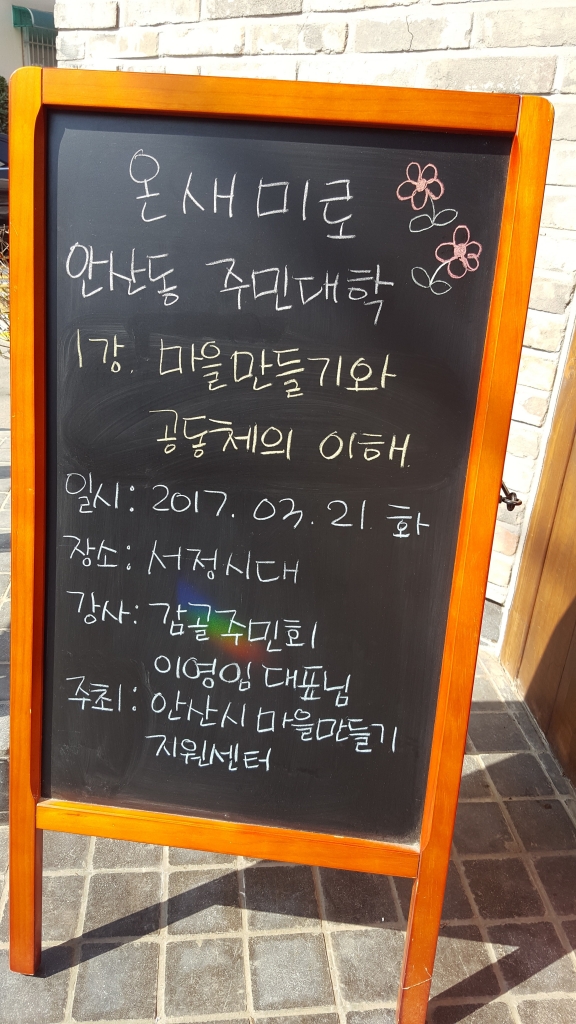 온새미로
안산동 주민대학
1강. 마을만들기와
공동체의 이해.
일시: 2017. 03. 21. 화
장소: 서정시대
강사: 감골주민회
이영임 대표님
주최: 안산시마을만들기
지원센터